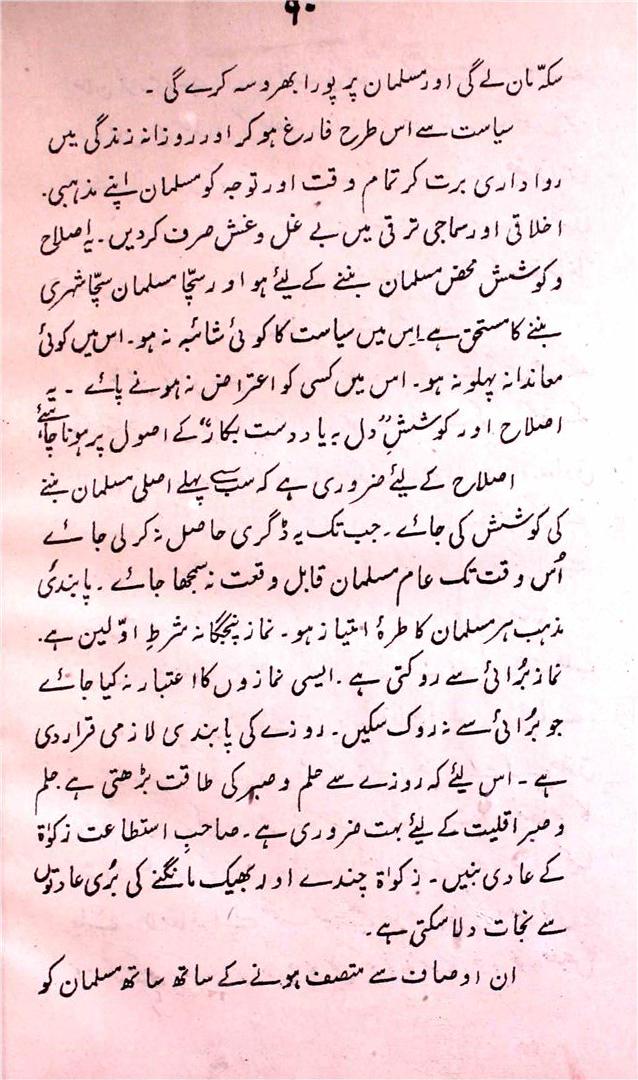 ۹۰
سکہّ مان لے گی اور مسلمان پر پورا بھروسہ کرے گی ۔
سیاست سے اس طرح فارغ ہو کر اور روزانہ زندگی میں
رواداری برت کر تمام وقت اور توجہ کو مسلمان اپنے مذہبی.
اخلاقی اور سماجی ترقی میں بے غل وغش صرف کردیں ۔ یہ اصلاح
و کوشش محض مسلمان بننے کے لیٔے ہو اور سچّا مسلمان سچّا شہری
بننے کا مستحق ہے۔ اِس میں سیاست کا کوئی شائبہ نہ ہو۔ اس میں کوئی
معاندانہ پہلو نہ ہو۔ اس میں کسی کو اعتراض نہ ہونے پائے ۔ یہ
اصلاح اور کوشش ”دل بہ یار دست بکار“ کے اصول پر ہونا چاہئے
اصلاح کے لیٔے ضروری ہے کہ سب سے پہلے اصلی مسلمان بننے
کی کوشش کی جائے ۔ جب تک یہ ڈگری حاصل نہ کر لی جائے
اُس وقت تک عام مسلمان قابل وقعت نہ سمجھا جائے ۔ پابندیٔ
مذہب ہر مسلمان کا طرۂ امتیاز ہو ۔ نماز پنجگانہ شرطِ اوّلین ہے.
نماز بُرائی سے روکتی ہے ۔ ایسی نمازوں کا اعتبار نہ کیا جائے
جو بُرائی سے نہ روک سکیں ۔ روزے کی پابندی لازمی قرار دی
ہے ۔ اس لیٔے کہ روزے سے حلم و صبر کی طاقت بڑھتی ہے ۔ حلم
و صبر اقلیت کے لیٔے بہت ضروری ہے ۔ صاحبِ استطاعت زکوٰۃ
کے عادی بنیں ۔ زکوٰۃ چندے اور بھیک مانگنے کی بُری عادتوں
سے نجات دلا سکتی ہے ۔
ان اوصاف سے متصف ہونے کے ساتھ ساتھ مسلمان کو